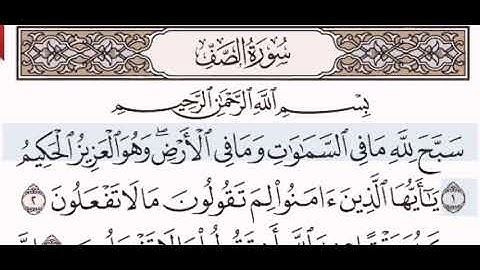 سُورَةُ الصَّفِّ
بِسْمِ اللَّهِ الرَّحْمَٰنِ الرَّحِيمِ
سَبَّحَ لِلَّهِ مَا فِي السَّمَاوَاتِ وَمَا فِي الْأَرْضِ ۖ وَهُوَ الْعَزِيزُ الْحَكِيمُ
۝١ يَا أَيُّهَا الَّذِينَ ءَامَنُوا لِمَ تَقُولُونَ مَا لَا تَفْعَلُونَ ۝٢